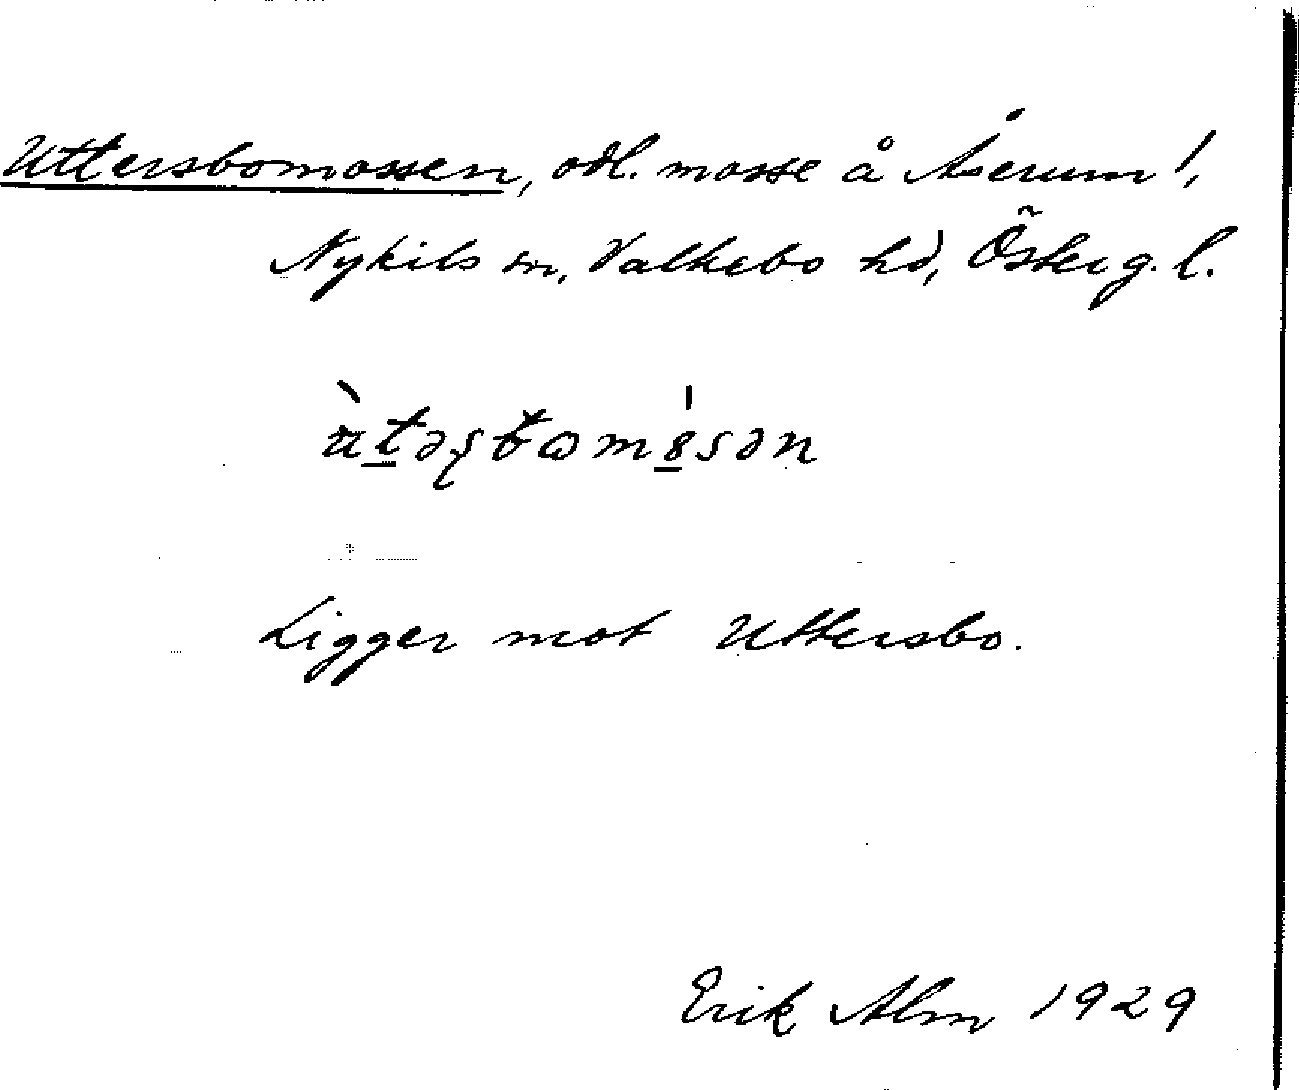 Uttersbomossen, odl. mosse å Åserum!,
Nykils sn, Valkebo hd, Österg. l.
Ligger mot Uttersbo.
Erik Alm 1929